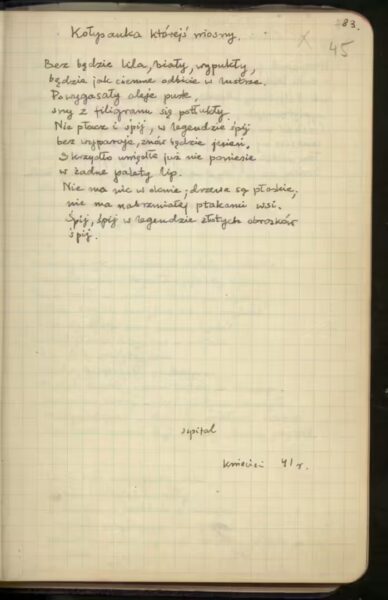 83.
45
Kołysanka którejś wiosny.
Bez będzie kila, biały, wypukły,
będzie jak ciemne odbicie w lustrze.
Powygasały aleje puste
sny z filigranu się potłukły.
Nie płacz i śpij, w legendzie śpij
bez wyparuje, znów będzie jesień.
Skrzydło umyśle już nie poniesie
w żadne palety lip.
Nie ma nic w oknie; drzewa są płaskie,
nie ma nabrzmiałej ptakami wsi.
Śpij, śpij w legendzie złotych obrazków
śpij.
szpital
kwiecień 41 r.